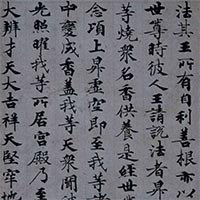 法其王所有自利善根亦以
世尊時彼人王請說法者昇
等燒衆名香供養是經世
念頃上昇虛空即至我等
中變成香蓋我等天衆聞
光照曜我等所居宮殿乃
大辯才天大吉祥天堅牢地